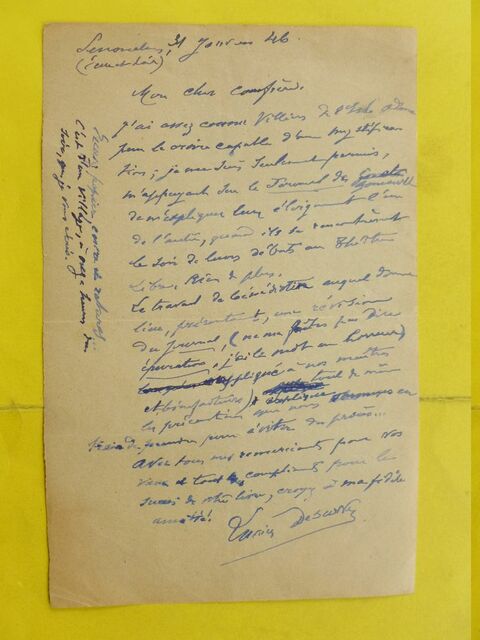 Senonches, 31 Janvier 46
(Eure et Loir)
Mon cher confrère,
J'ai assez connu Villiers de l'Isle Adam
pour le croire capable d'une mystification
tion; je me suis seulement permis,
m'appuyant sur le Journal des Goncourt
de m'expliquer leur éloignement l'un
de l'autre, quand ils se rencontrèrent
le soir de leurs débuts au Théâtre
Libre. Rien de plus.
Le travail de bénédictin auquel donne
lieu, présentement, une révision
du Journal, (ne me faites pas dire
épuration, j'ai le mot en horreur)
appliqué à nos maîtres
et bienfaiteurs), tout de même
les précautions que nous
de prendre pour éviter des procès...
Avec tous mes remerciements pour vos
vœux et tous les compliments pour le
succès de votre livre, croyez à ma fidèle
amitié.
Lucien Descaves